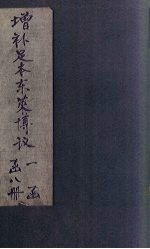 增补足本东莱博议
一函
函八册